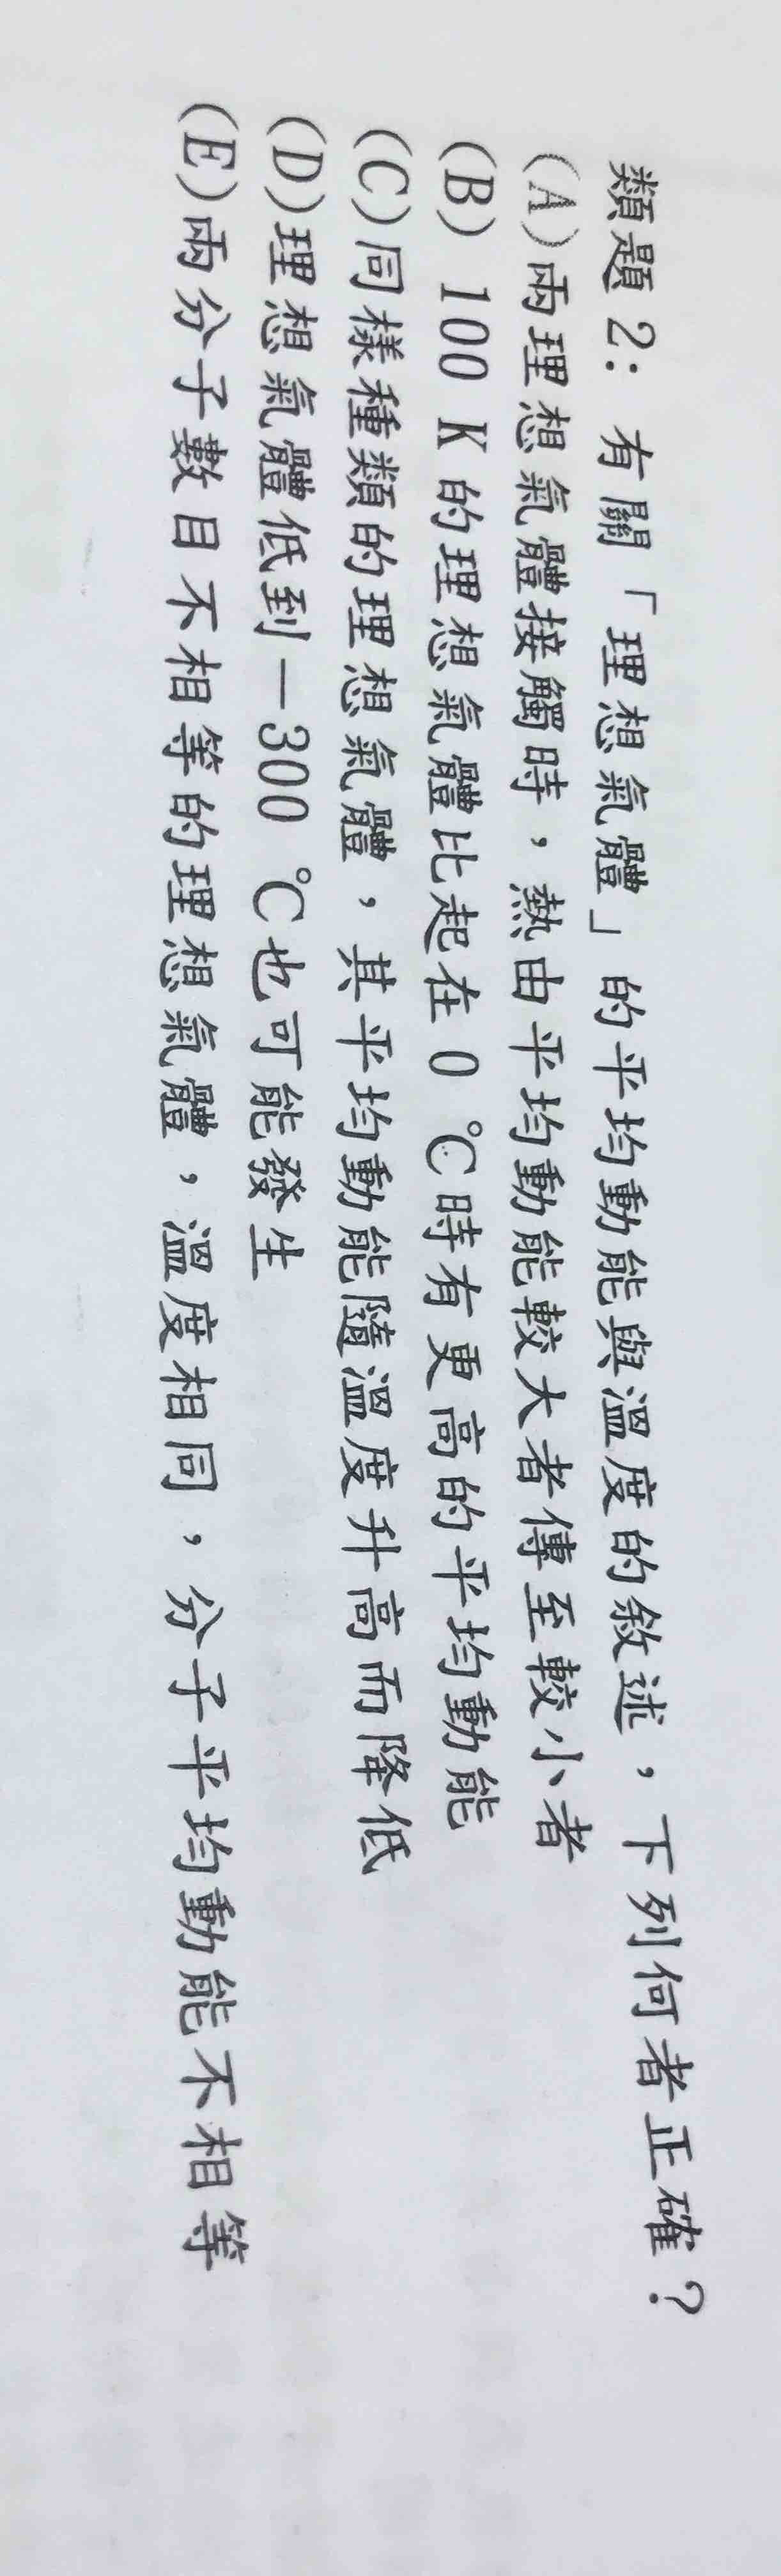 類題 2: 有關「理想氣體」的平均動能與溫度的敘述，下列何者正確？
(A)兩理想氣體接觸時，熱由平均動能較大者傳至較小者
(B) 100 K 的理想氣體比起在 0 ℃時有更高的平均動能
(C)同樣種類的理想氣體，其平均動能隨溫度升高而降低
(D)理想氣體低到－300 ℃也可能發生
(E)兩分子數目不相等的理想氣體，溫度相同，分子平均動能不相等